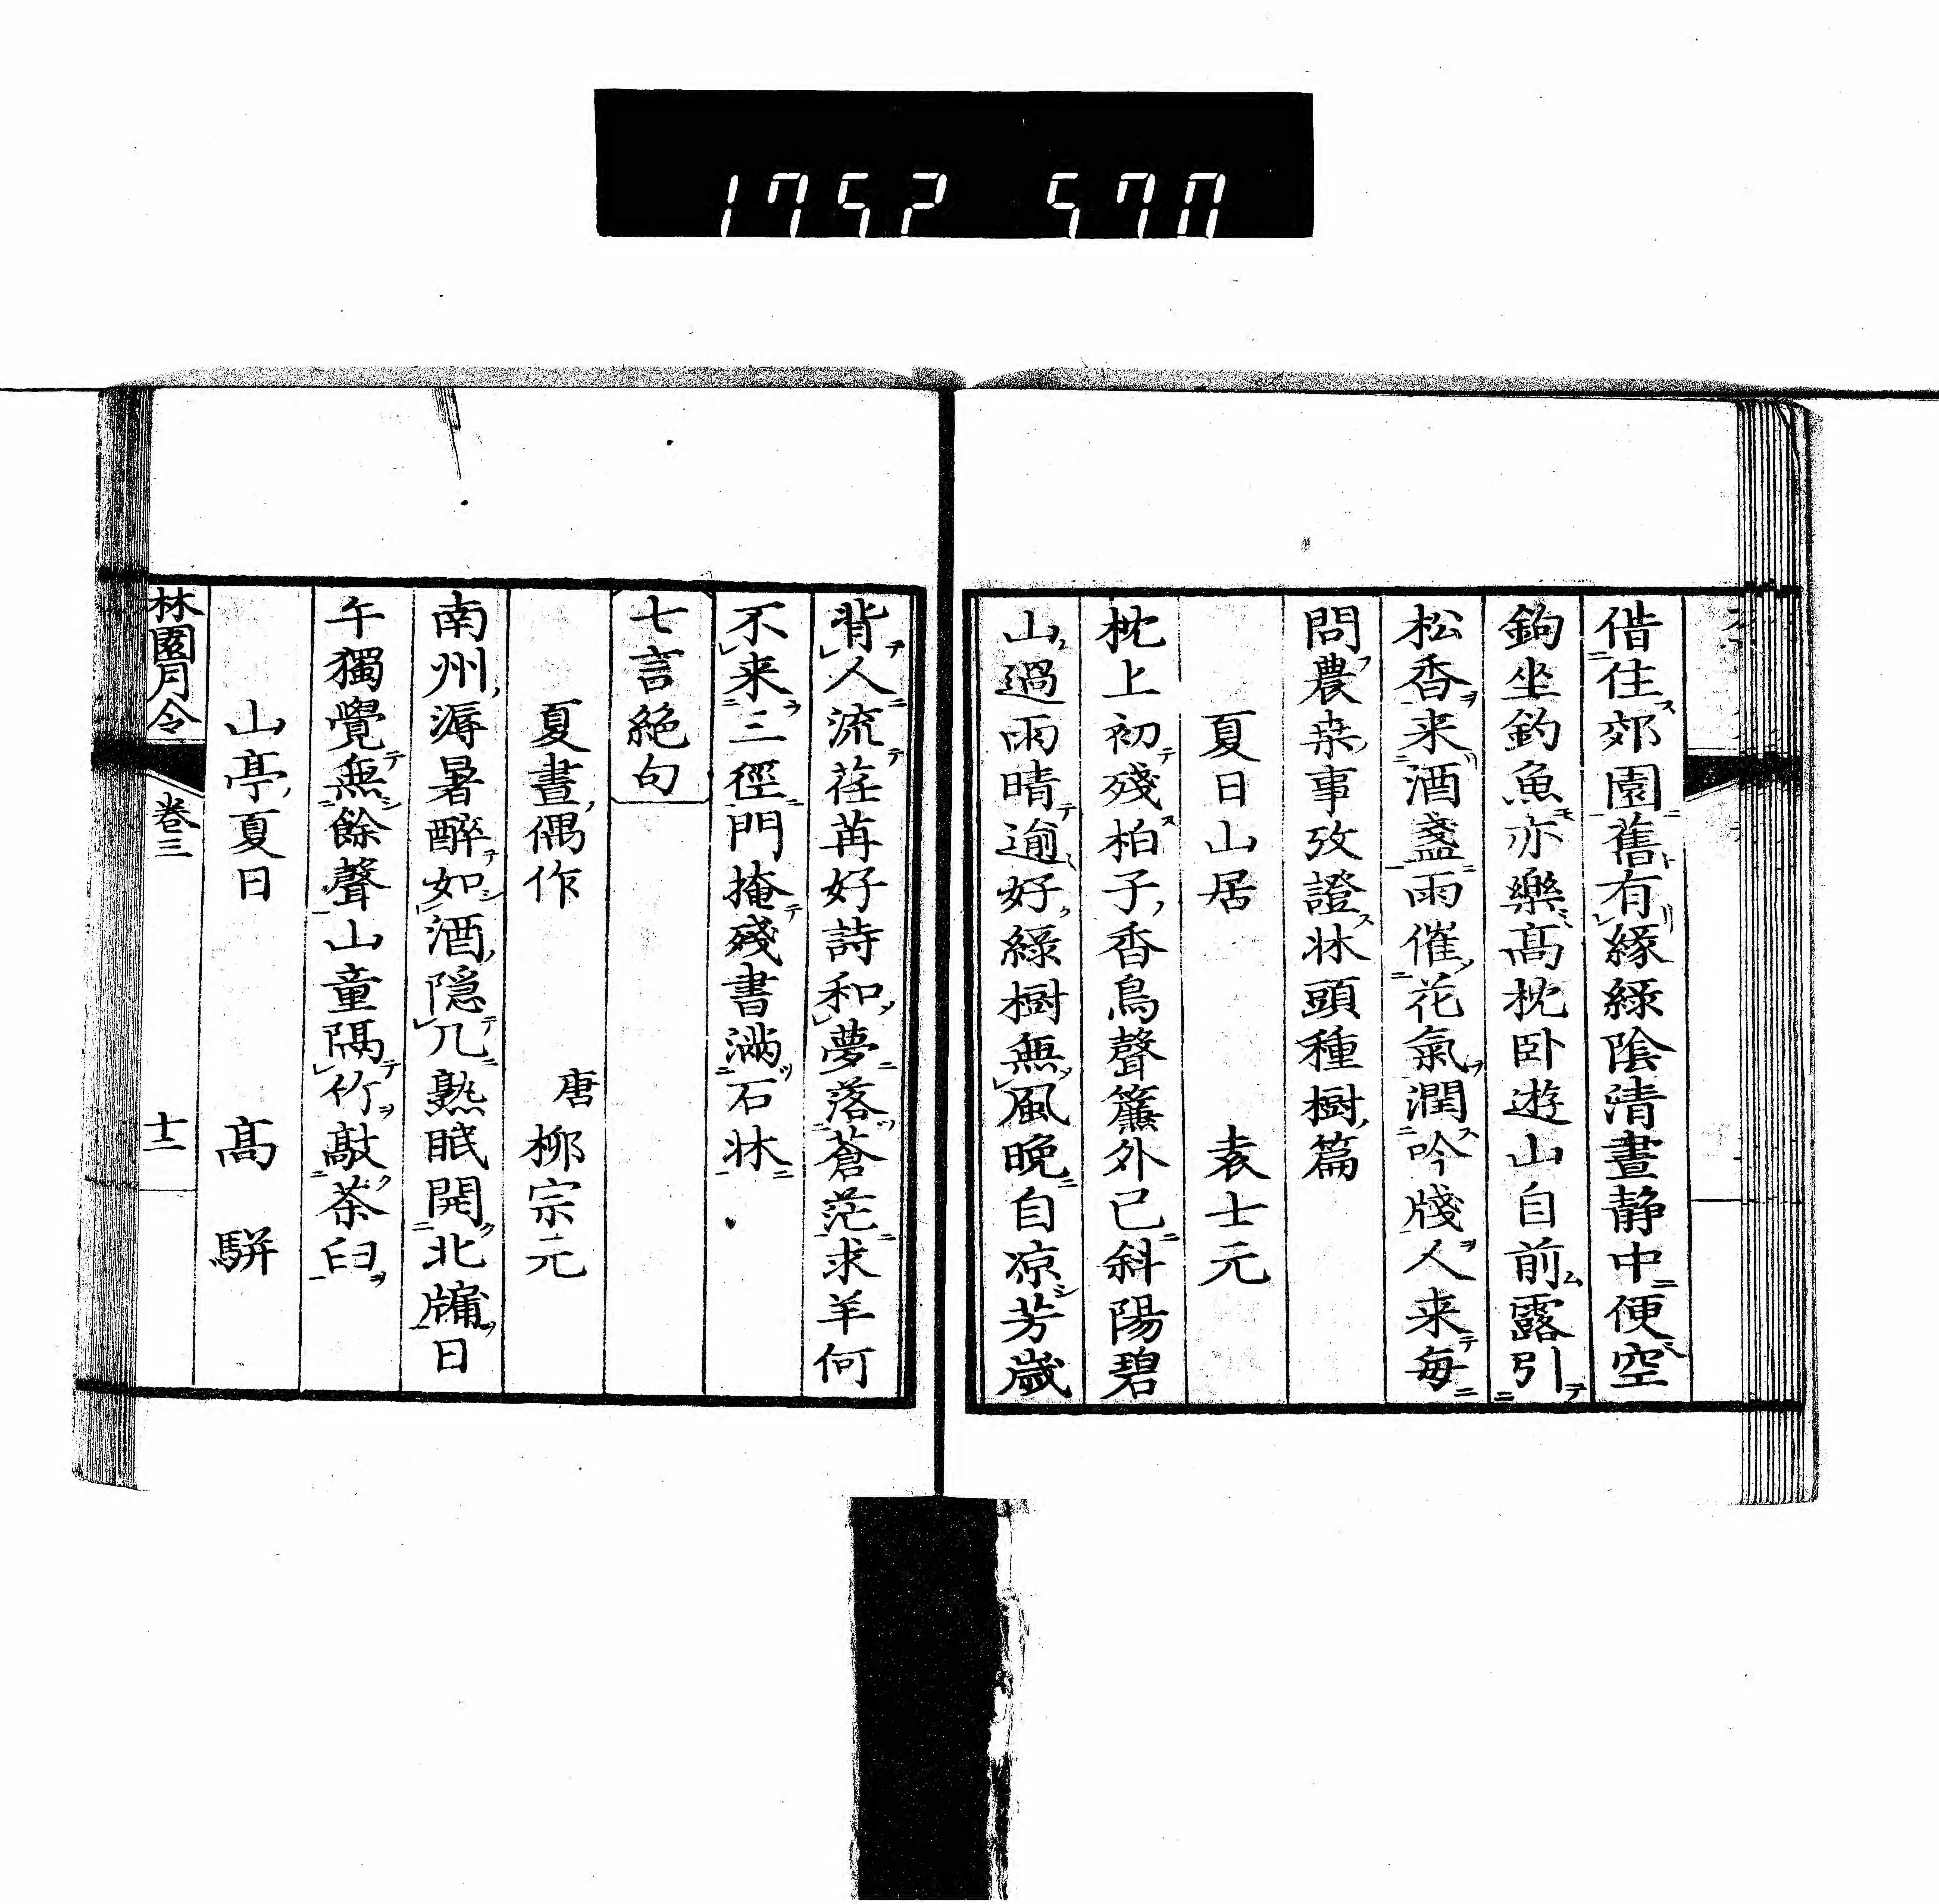 1752 570
偕住郊園舊有緣綠陰清晝静中便空
鉤坐釣魚亦樂高枕卧遊山自前露引
松香来酒盞雨催花氣潤吟牋人来每
問農桒事攷證牀頭種樹篇
夏日山居 袁士元
枕上初殘柏子香鳥聲簾外已斜陽碧
山過雨晴逾好綠樹無風晚自凉芳歲
背人流荏苒好詩和夢落蒼茫求羊何
不来三徑門掩殘書滿石牀
七言絶句
夏晝偶作 唐 柳宗元
南州溽暑醉如酒隠几熟眠開北牖日
午獨覺無餘聲山童隔竹敲茶臼
山亭夏日 高駢
林園月令 卷三 十二